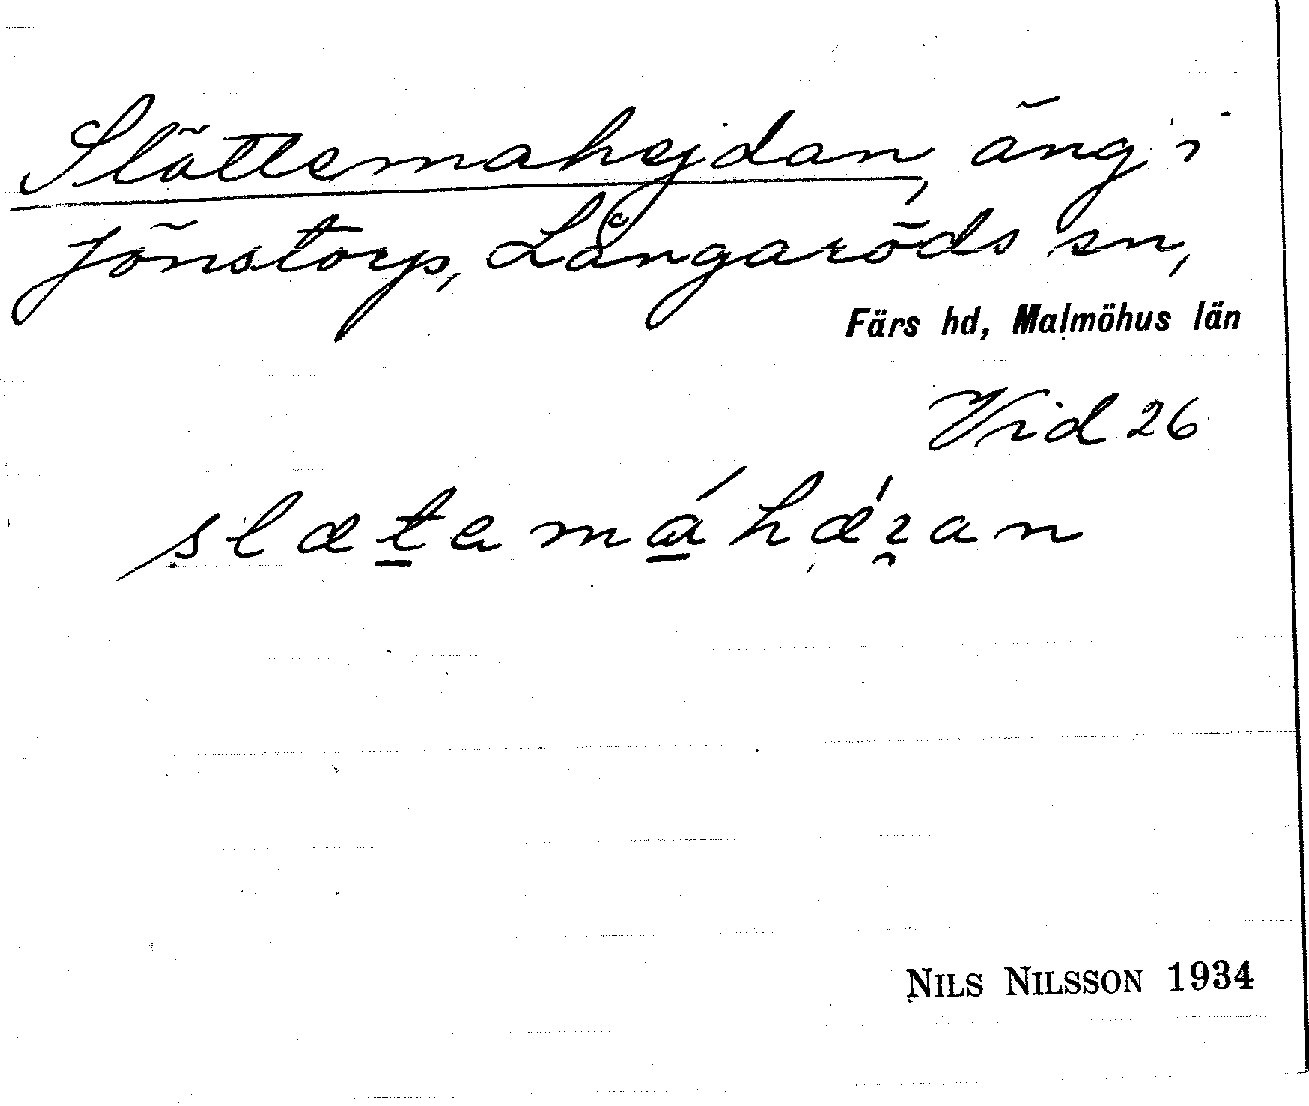 Slättemahejdan, äng i
Jönstorp, Långaröds sn,
Färs hd, Malmöhus län
Vid 26
slætamáhǽran
NILS NILSSON 1934